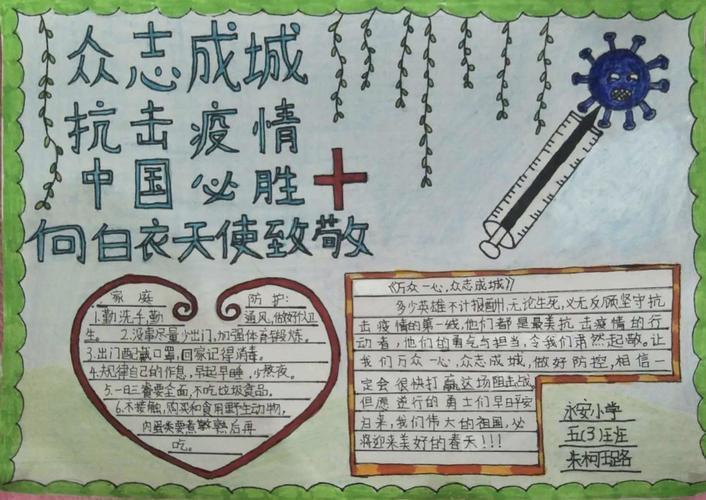 众志成城
抗击疫情
中国必胜
向白衣天使致敬
家庭 防护:
1.勤洗手,勤通风,做好个人卫
生。 2.没事尽量少出门,加强体育锻炼。
3.出门配戴口罩,回家记得消毒。
4.规律自己的作息,早起早睡,少熬夜。
5.一日三餐要全面,不吃垃圾食品。
6.不接触,购买和食用野生动物,
肉蛋类要煮熟后再
吃。
《万众一心,众志成城》
多少英雄不计报酬,无论生死,义无反顾坚守抗
击疫情的第一线,他们都是最美抗击疫情的行
动者,他们的勇气与担当,令我们肃然起敬。让
我们万众一心,众志成城,做好防控,相信一
定会很快打赢这场阻击战,
但愿逆行的勇士们早日平安
归来,我们伟大的祖国,必
将迎来美好的春天!!!
永安小学
五(3)班
朱柯